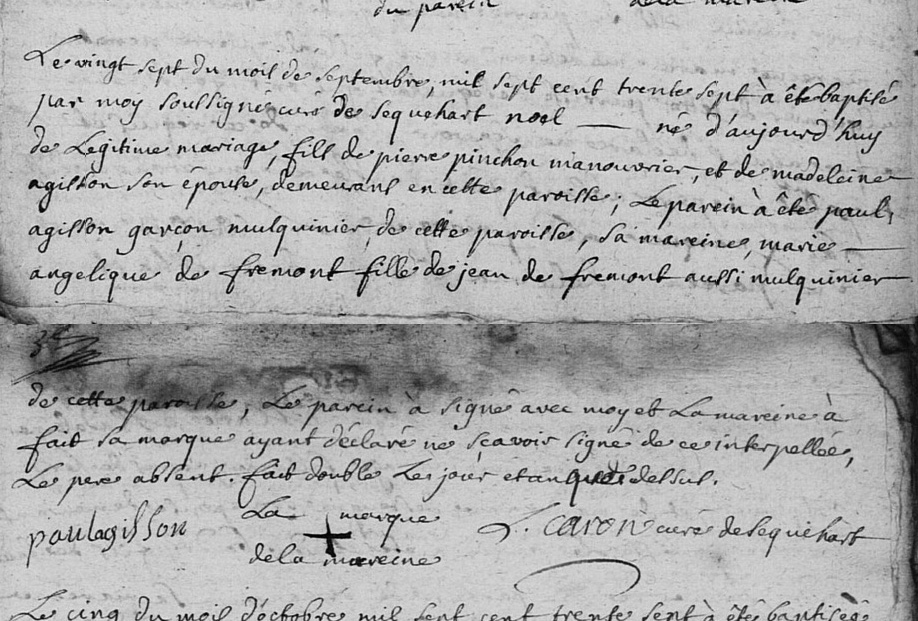 du parein dela mareine
Le vingt sept du mois de septembre, mil sept cent trente sept à êté baptisé
par moy soussigné curé de sequehart noel — né d'aujourd'huy
de Légitime mariage, fils de pierre pinchon manouvrier, et de madeleine
agisson son épouse, demeurans en cette paroisse; Le parein à êté paul,
agisson garçon mulquinier, de cette paroisse, sa mareine, marie —
angelique de fremont fille de jean de fremont aussi mulquinier
de cette paroisse, Le parein à signé avec moy et La mareine à
fait sa marque ayant déclaré ne sçavoir signé de ce interpellée,
Le pere absent. fait double Les jour et an que dessus.
paulagisson La marque L. caron curé de sequehart
dela mareine
Le cinq du mois d'octobre mil sept cent trente sept à êté baptisée